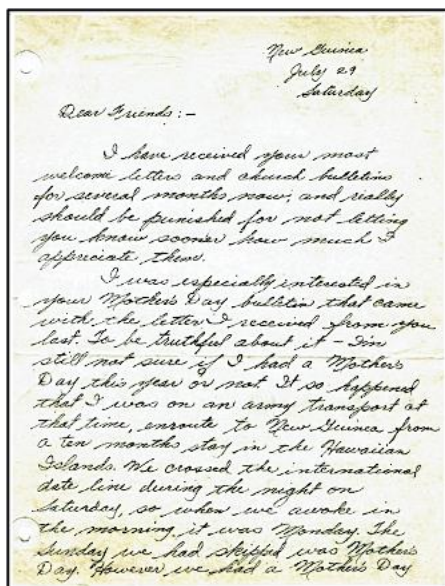 New Guinea
July 29
Saturday
Dear Friends:-
I have received your most
welcome letters and church bulletins
for several months now, and really
should be punished for not letting
you know sooner how much I
appreciate them.
I was especially interested in
your Mother's Day bulletin that came
with the letter I received from you
last. To be truthful about it - I'm
still not sure if I had a Mother's
Day this year or not. It so happened
that I was on an army transport at
that time, enroute to New Guinea from
a ten months stay in the Hawaiian
Islands. We crossed the international
date line during the night on
Saturday, so when we awoke in
the morning it was Monday. The
Sunday we had skipped was Mother's
Day. However we had a Mother's Day